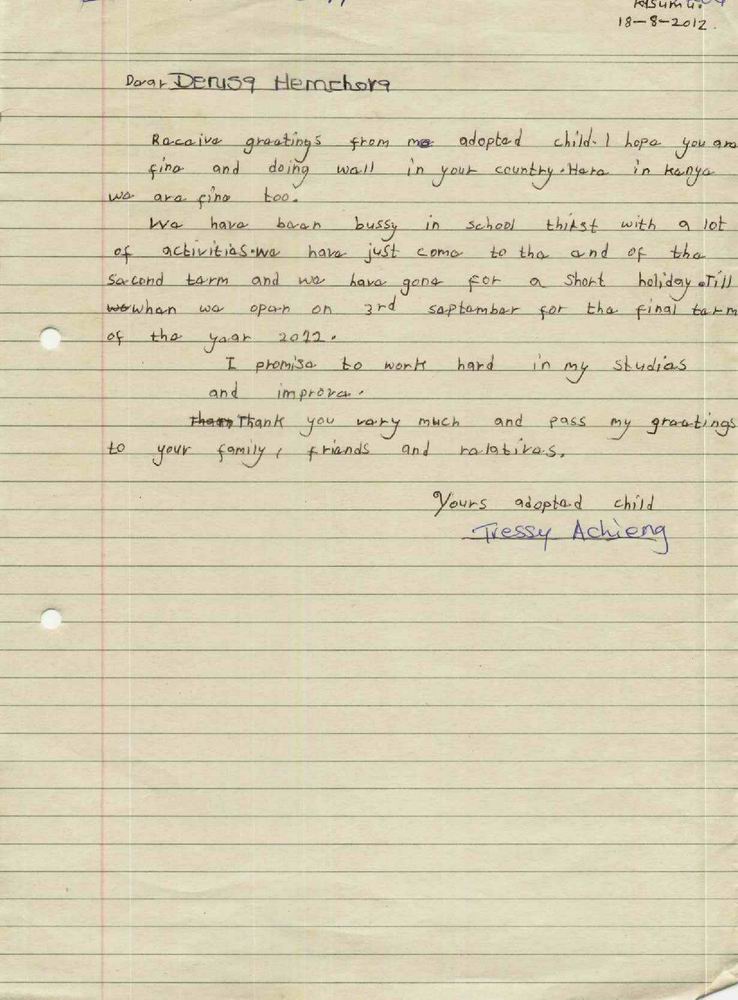 Kisumu.
18-8-2012.
Dear Derusa Hemchora
Receive greetings from me adopted child. I hope you are
fine and doing well in your country. Here in Kenya
we are fine too.
We have been bussy in school thirst with a lot
of activities. we have just come to the end of the
second term and we have gone for a short holiday. Till
we when we open on 3rd september for the final term
of the year 2012.
I promise to work hard in my studies
and improve.
Thank you very much and pass my greetings
to your family, friends and relatives.
Yours adopted child
Tressy Achieng